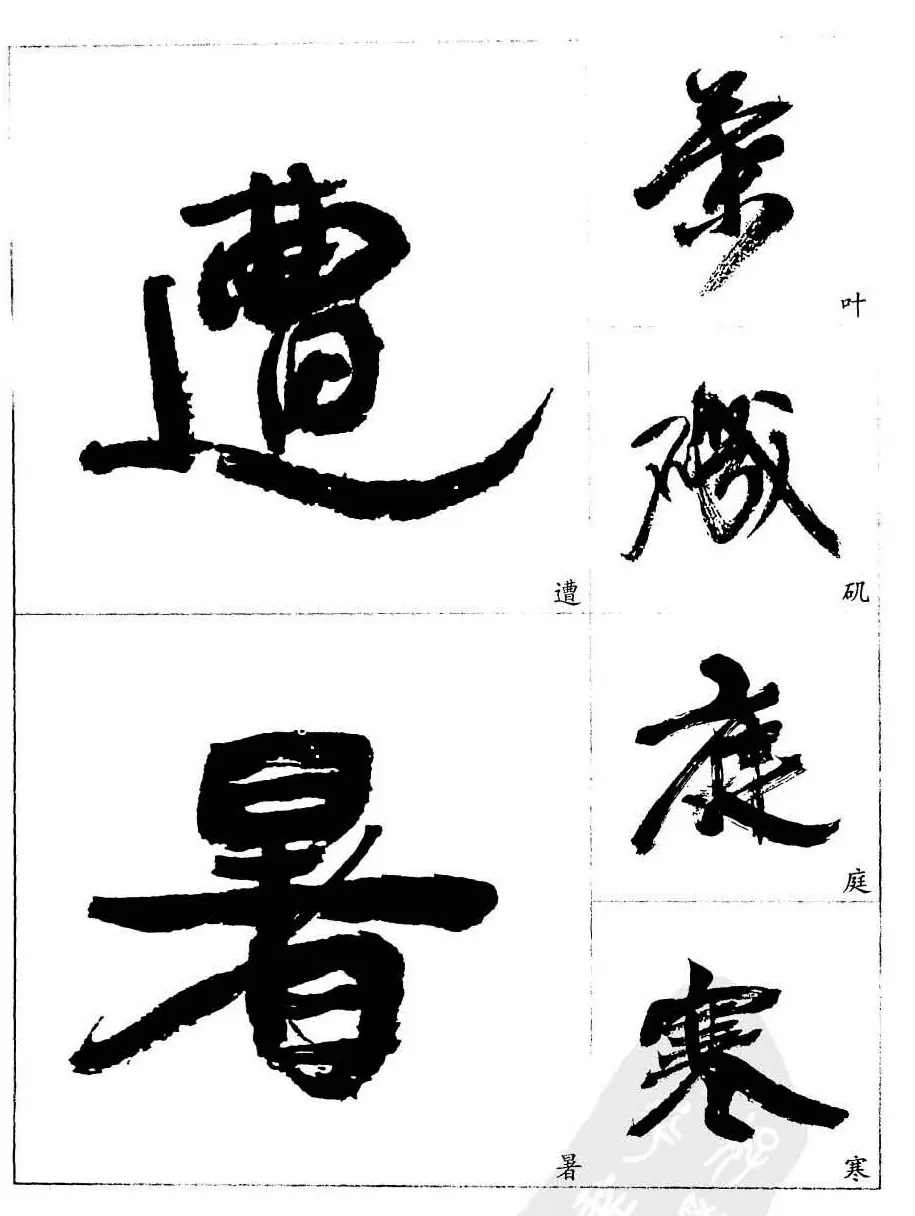 遭
遭
暑
暑
葉
叶
磯
矶
庭
庭
寒
寒